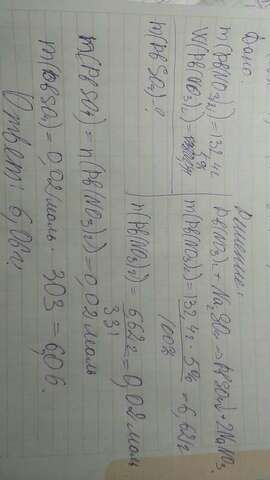 Дано:
m(Pb(NO3)2)=132,4г
W(Pb(NO3)2)=5%
m(PbSO4)-?
Решение:
Pb(NO3)2+Na2SO4→PbSO4↓+2NaNO3
m(Pb(NO3)2)=132,4г·5%/100%=6,62г
n(Pb(NO3)2)=6,62г/331=0,02моль
n(PbSO4)=n(Pb(NO3)2)=0,02моль
m(PbSO4)=0,02моль·303=6,06.
Ответ: 6,06г